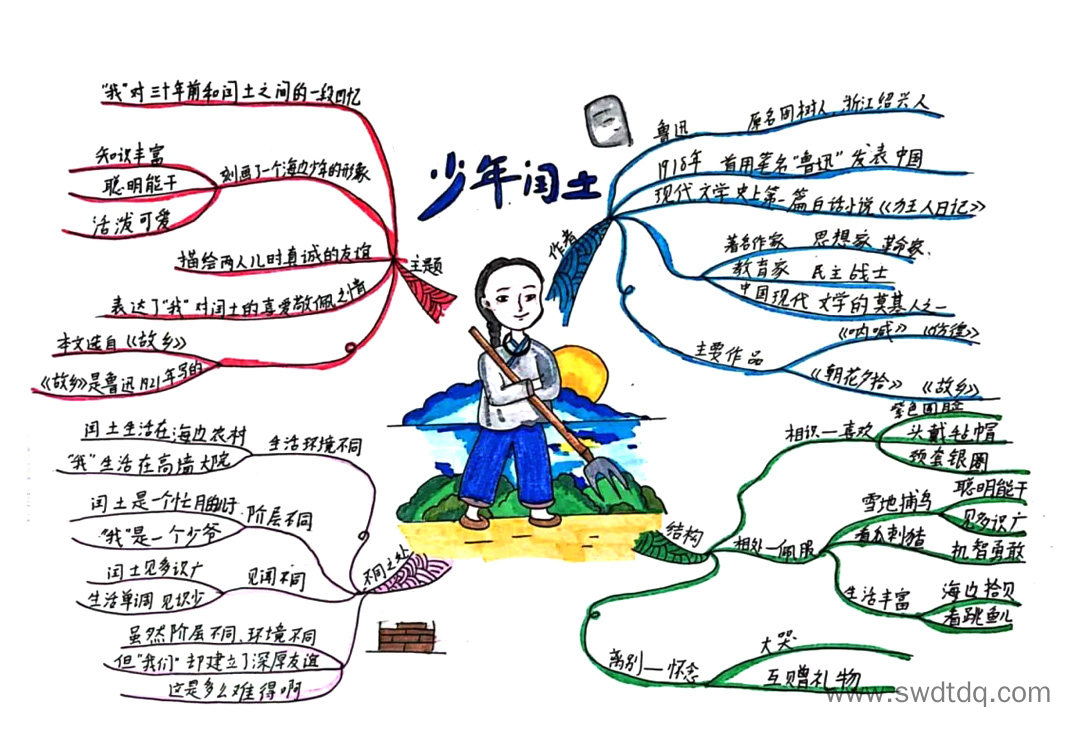 少年闰土
主题
"我"对三十年前和闰土之间的一段回忆
刻画了一个海边少年的形象
知识丰富
聪明能干
活泼可爱
描绘两人儿时真诚的友谊
表达了"我"对闰土的喜爱敬佩之情
本文选自《故乡》
《故乡》是鲁迅1921年写的
作者
鲁迅 原名周树人 浙江绍兴人
1918年 首用笔名"鲁迅"发表中国
现代文学史上第一篇白话小说《
人日记》
著名作家 思想家 革命家、
教育家 民主战士
中国现代文学的奠基人之一
主要作品
《呐喊》《彷徨》
《朝花夕拾》《故乡》
不同之处
生活环境不同
闰土生活在海边农村
"我"生活在高墙大院
阶层不同
闰土是一个忙月的
"我"是一个少爷
见闻不同
闰土见多识广
生活单调 见识少
虽然阶层不同、环境不同
但"我们"却建立了深厚友谊
这是多么难得啊
结构
相识—喜欢
紫色圆脸
头戴毡帽
颈套银圈
相处—佩服
雪地捕鸟
聪明能干
见多识广
看瓜刺猹
机智勇敢
生活丰富
海边拾贝
看跳鱼儿
离别—怀念
大哭
互赠礼物
www.swdtdq.com